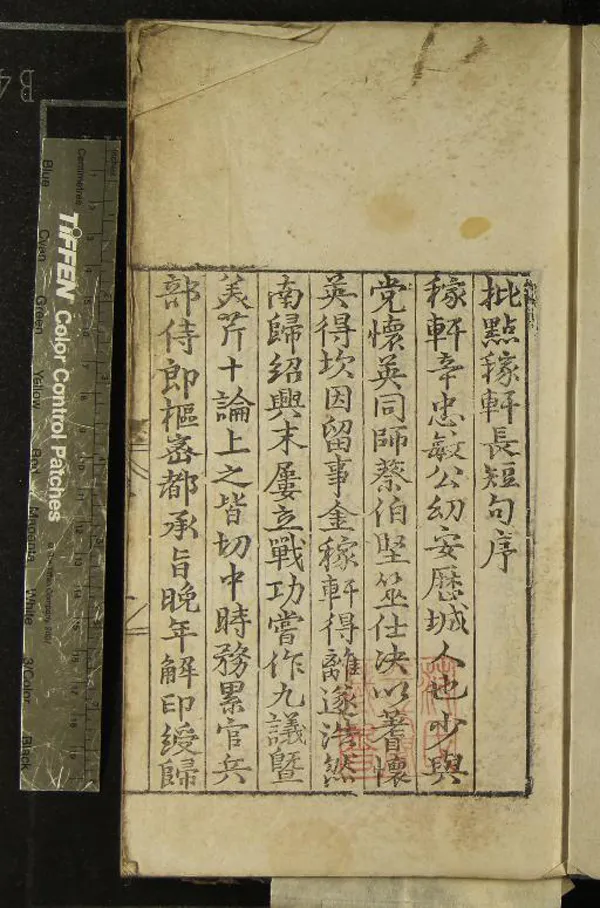 批點稼軒長短句序
稼軒辛忠敏公幼安歷城人也少與
党懷英同師蔡伯堅筮仕決以蓍懷
英得坎因留事金稼軒得離遂浩然
南歸紹興末屢立戰功嘗作九議曁
美芹十論上之皆切中時務累官兵
部侍郎樞密都承旨晚年解印綬歸
B4
TIFFEN Color Control Patches
Centimetres
Blue
Cyan
Green
Yellow
Magenta
White
3/Color
Black